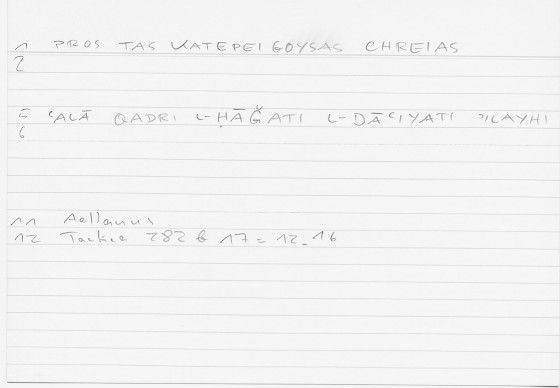 1 PROS TAS KATEPEIGOYSAS CHREIAS
2
5 ʿALĀ QADRI L-ḤĀǦATI L-DĀʿIYATI ʾILAYHI
6
11 Aelianus
12 Taktica 282 b 17 = 12.16